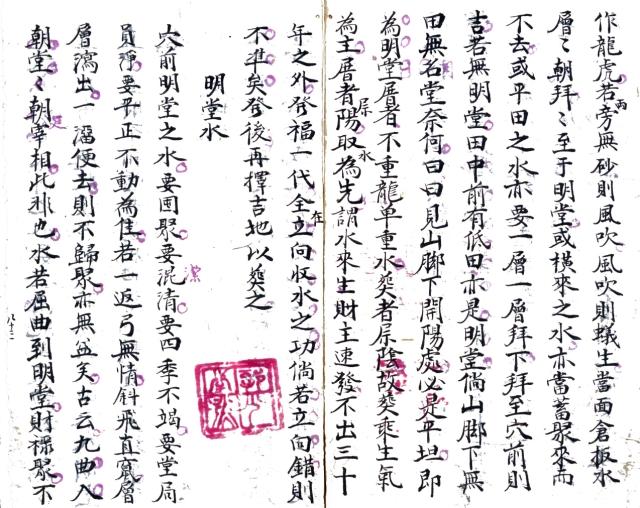 作龍虎若両旁無砂則風吹風吹則蟻生當面倉板水
層〻朝拜〻至于明堂或横來之水亦當蓄聚來而
不去或平田之水亦要一層一層拜下拜至穴前則
吉若無明堂田中前有低田亦是明堂倘山脚下無
田無名堂奈何曰曰見山脚下開陽處必是平坦即
為明堂層者不重龍单重水葵者屎陰故葵乘生氣
為主層者陽屎水取為先謂水來生財主速發不出三十
年之外發福一代全在立向収水之功倘若立向錯則
不準矣發後再擇吉地以葵之
明堂水
穴前明堂之水要囲聚要混清要四季不竭要堂局
員淨要平正不動為佳若一返弓無情斜飛直竄層
層瀉出一溜便去則不歸聚亦無益矣古云九曲入
朝堂〻朝宰相此非也水若屈曲到明堂財禄聚不